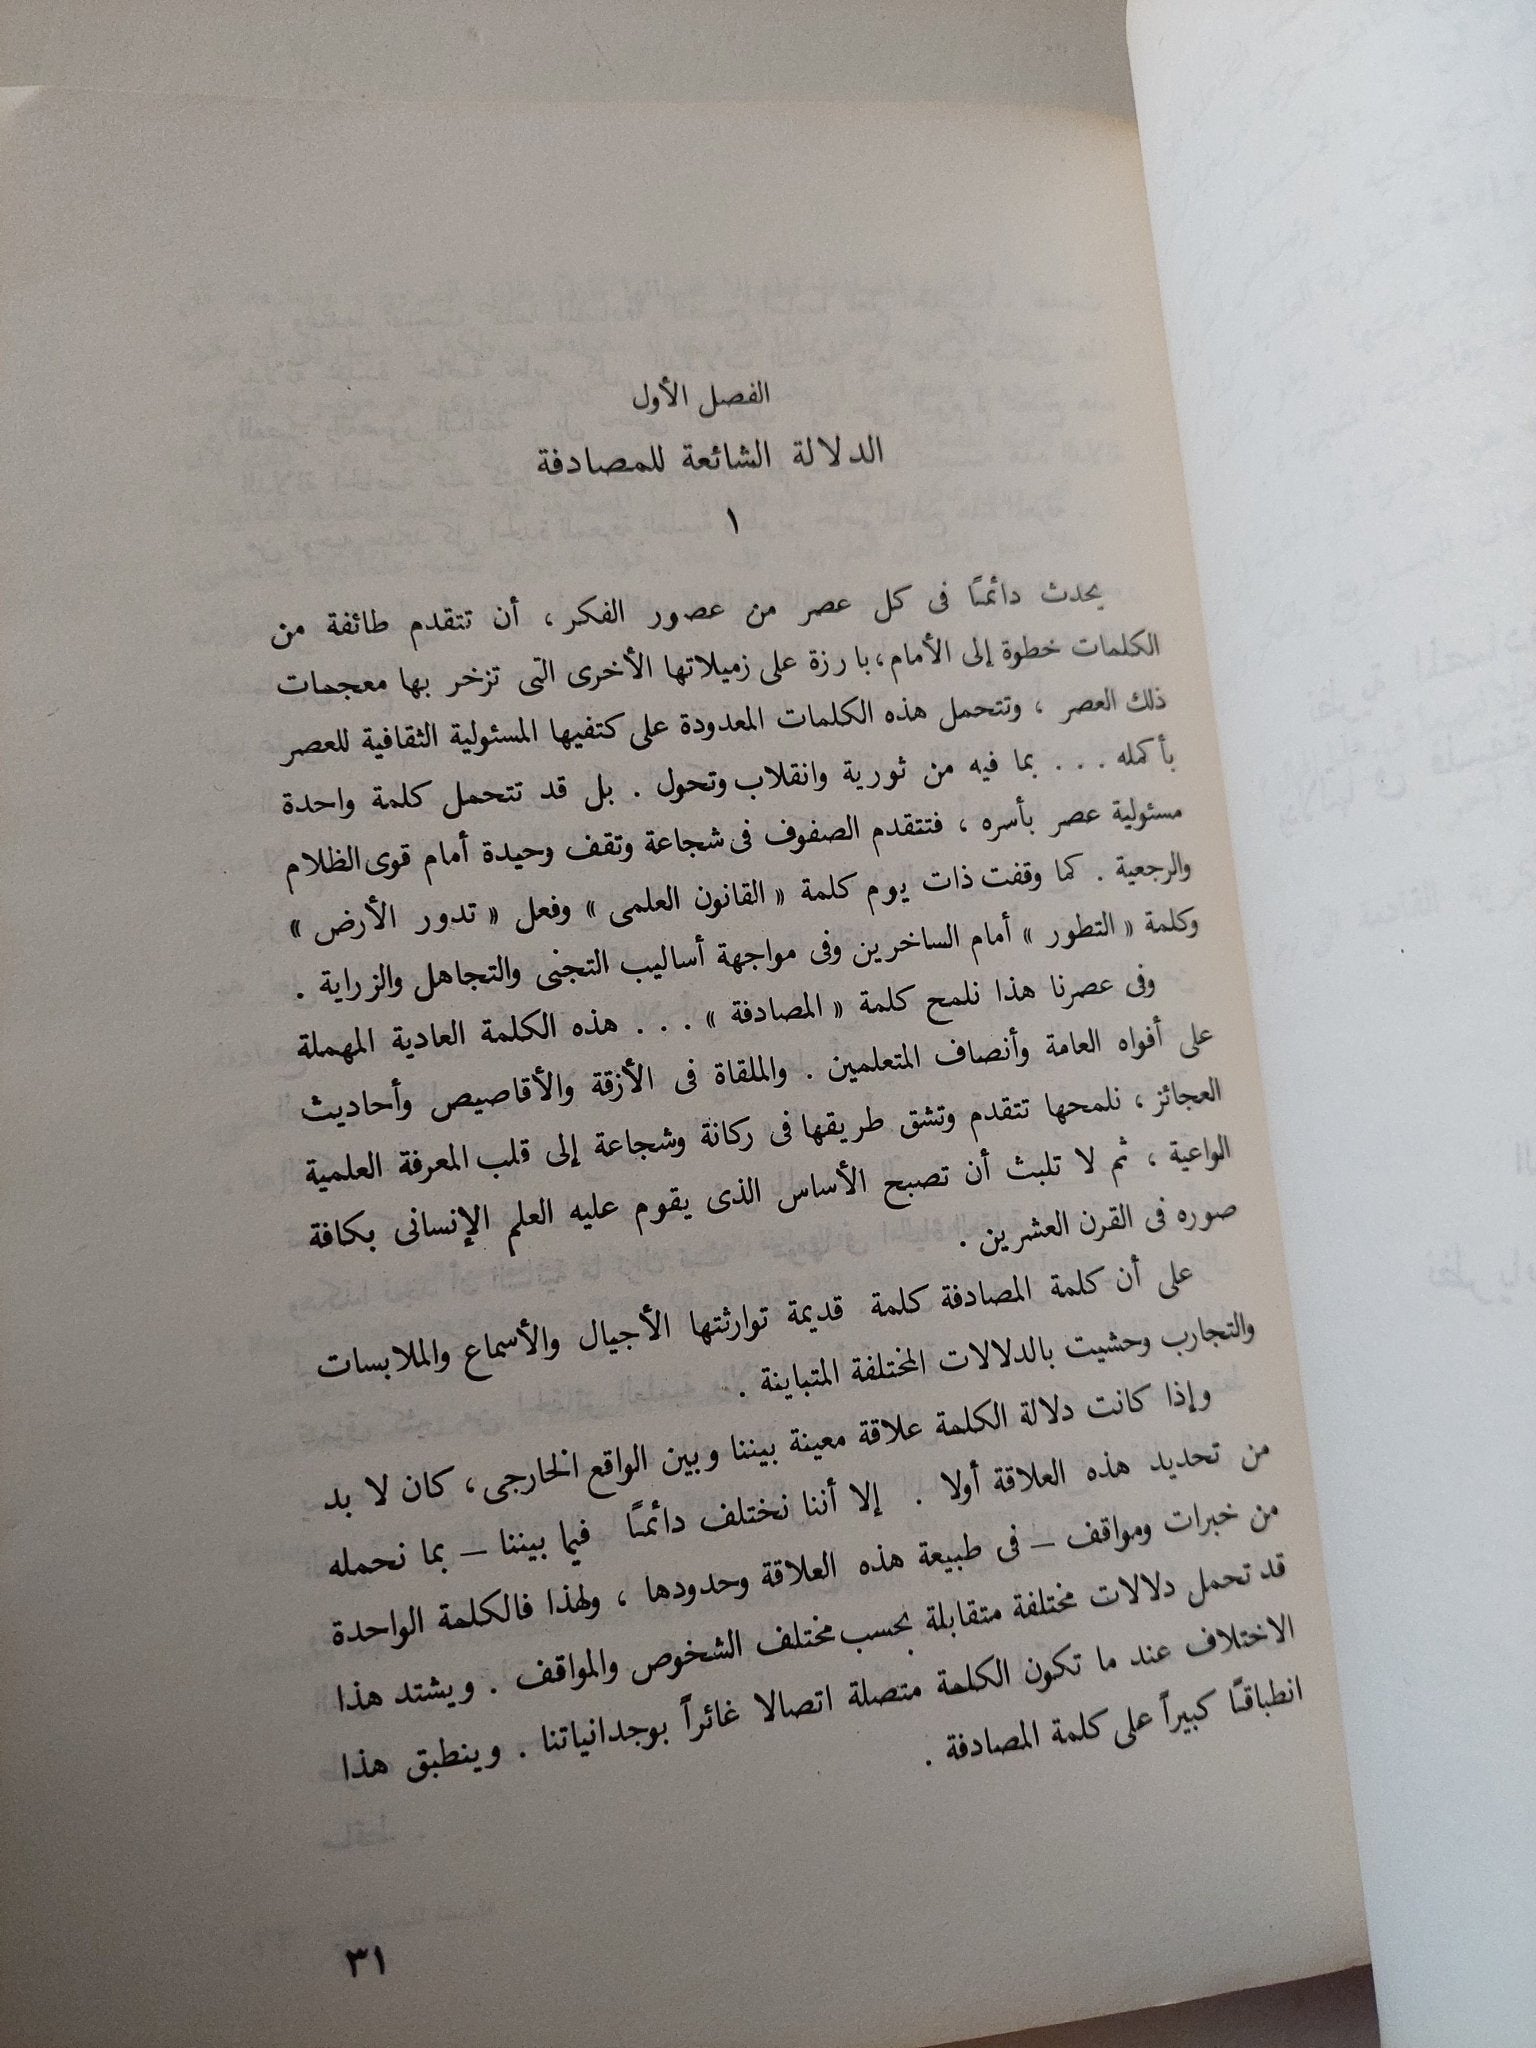 الفصل الأول
الدلالة الشائعة للمصادفة
١
يحدث دائمًا فى كل عصر من عصور الفكر ، أن تتقدم طائفة من
الكلمات خطوة إلى الأمام ، بارزة على زميلاتها الأخرى التى تزخر بها معجمات
ذلك العصر ، وتتحمل هذه الكلمات المعدودة على كتفيها المسئولية الثقافية للعصر
بأكمله . . . بما فيه من ثورية وانقلاب وتحول . بل قد تتحمل كلمة واحدة
مسئولية عصر بأسره ، فتتقدم الصفوف فى شجاعة وتقف وحيدة أمام قوى الظلام
والرجعية . كما وقفت ذات يوم كلمة « القانون العلمى » وفعل « تدور الأرض »
وكلمة « التطور » أمام الساخرين وفى مواجهة أساليب التجنى والتجاهل والزراية .
وفى عصرنا هذا نلمح كلمة « المصادفة » . . . هذه الكلمة العادية المهملة
على أفواه العامة وأنصاف المتعلمين . والملقاة فى الأزقة والأقاصيص وأحاديث
العجائز ، نلمحها تتقدم وتشق طريقها فى ركانة وشجاعة إلى قلب المعرفة العلمية
الواعية ، ثم لا تلبث أن تصبح الأساس الذى يقوم عليه العلم الإنسانى بكافة
صوره فى القرن العشرين .
على أن كلمة المصادفة كلمة قديمة توارثتها الأجيال والأسماع والملابسات
والتجارب وحشيت بالدلالات المختلفة المتباينة .
وإذا كانت دلالة الكلمة علاقة معينة بيننا وبين الواقع الخارجى ، كان لا بد
من تحديد هذه العلاقة أولا . إلا أننا نختلف دائمًا فيما بيننا – بما نحمله
من خبرات ومواقف – فى طبيعة هذه العلاقة وحدودها ، ولهذا فالكلمة الواحدة
قد تحمل دلالات مختلفة متقابلة بحسب مختلف الشخوص والمواقف . ويشتد هذا
الاختلاف عند ما تكون الكلمة متصلة اتصالا غائراً بوجدانياتنا . وينطبق هذا
انطباقًا كبيراً على كلمة المصادفة .
٣١